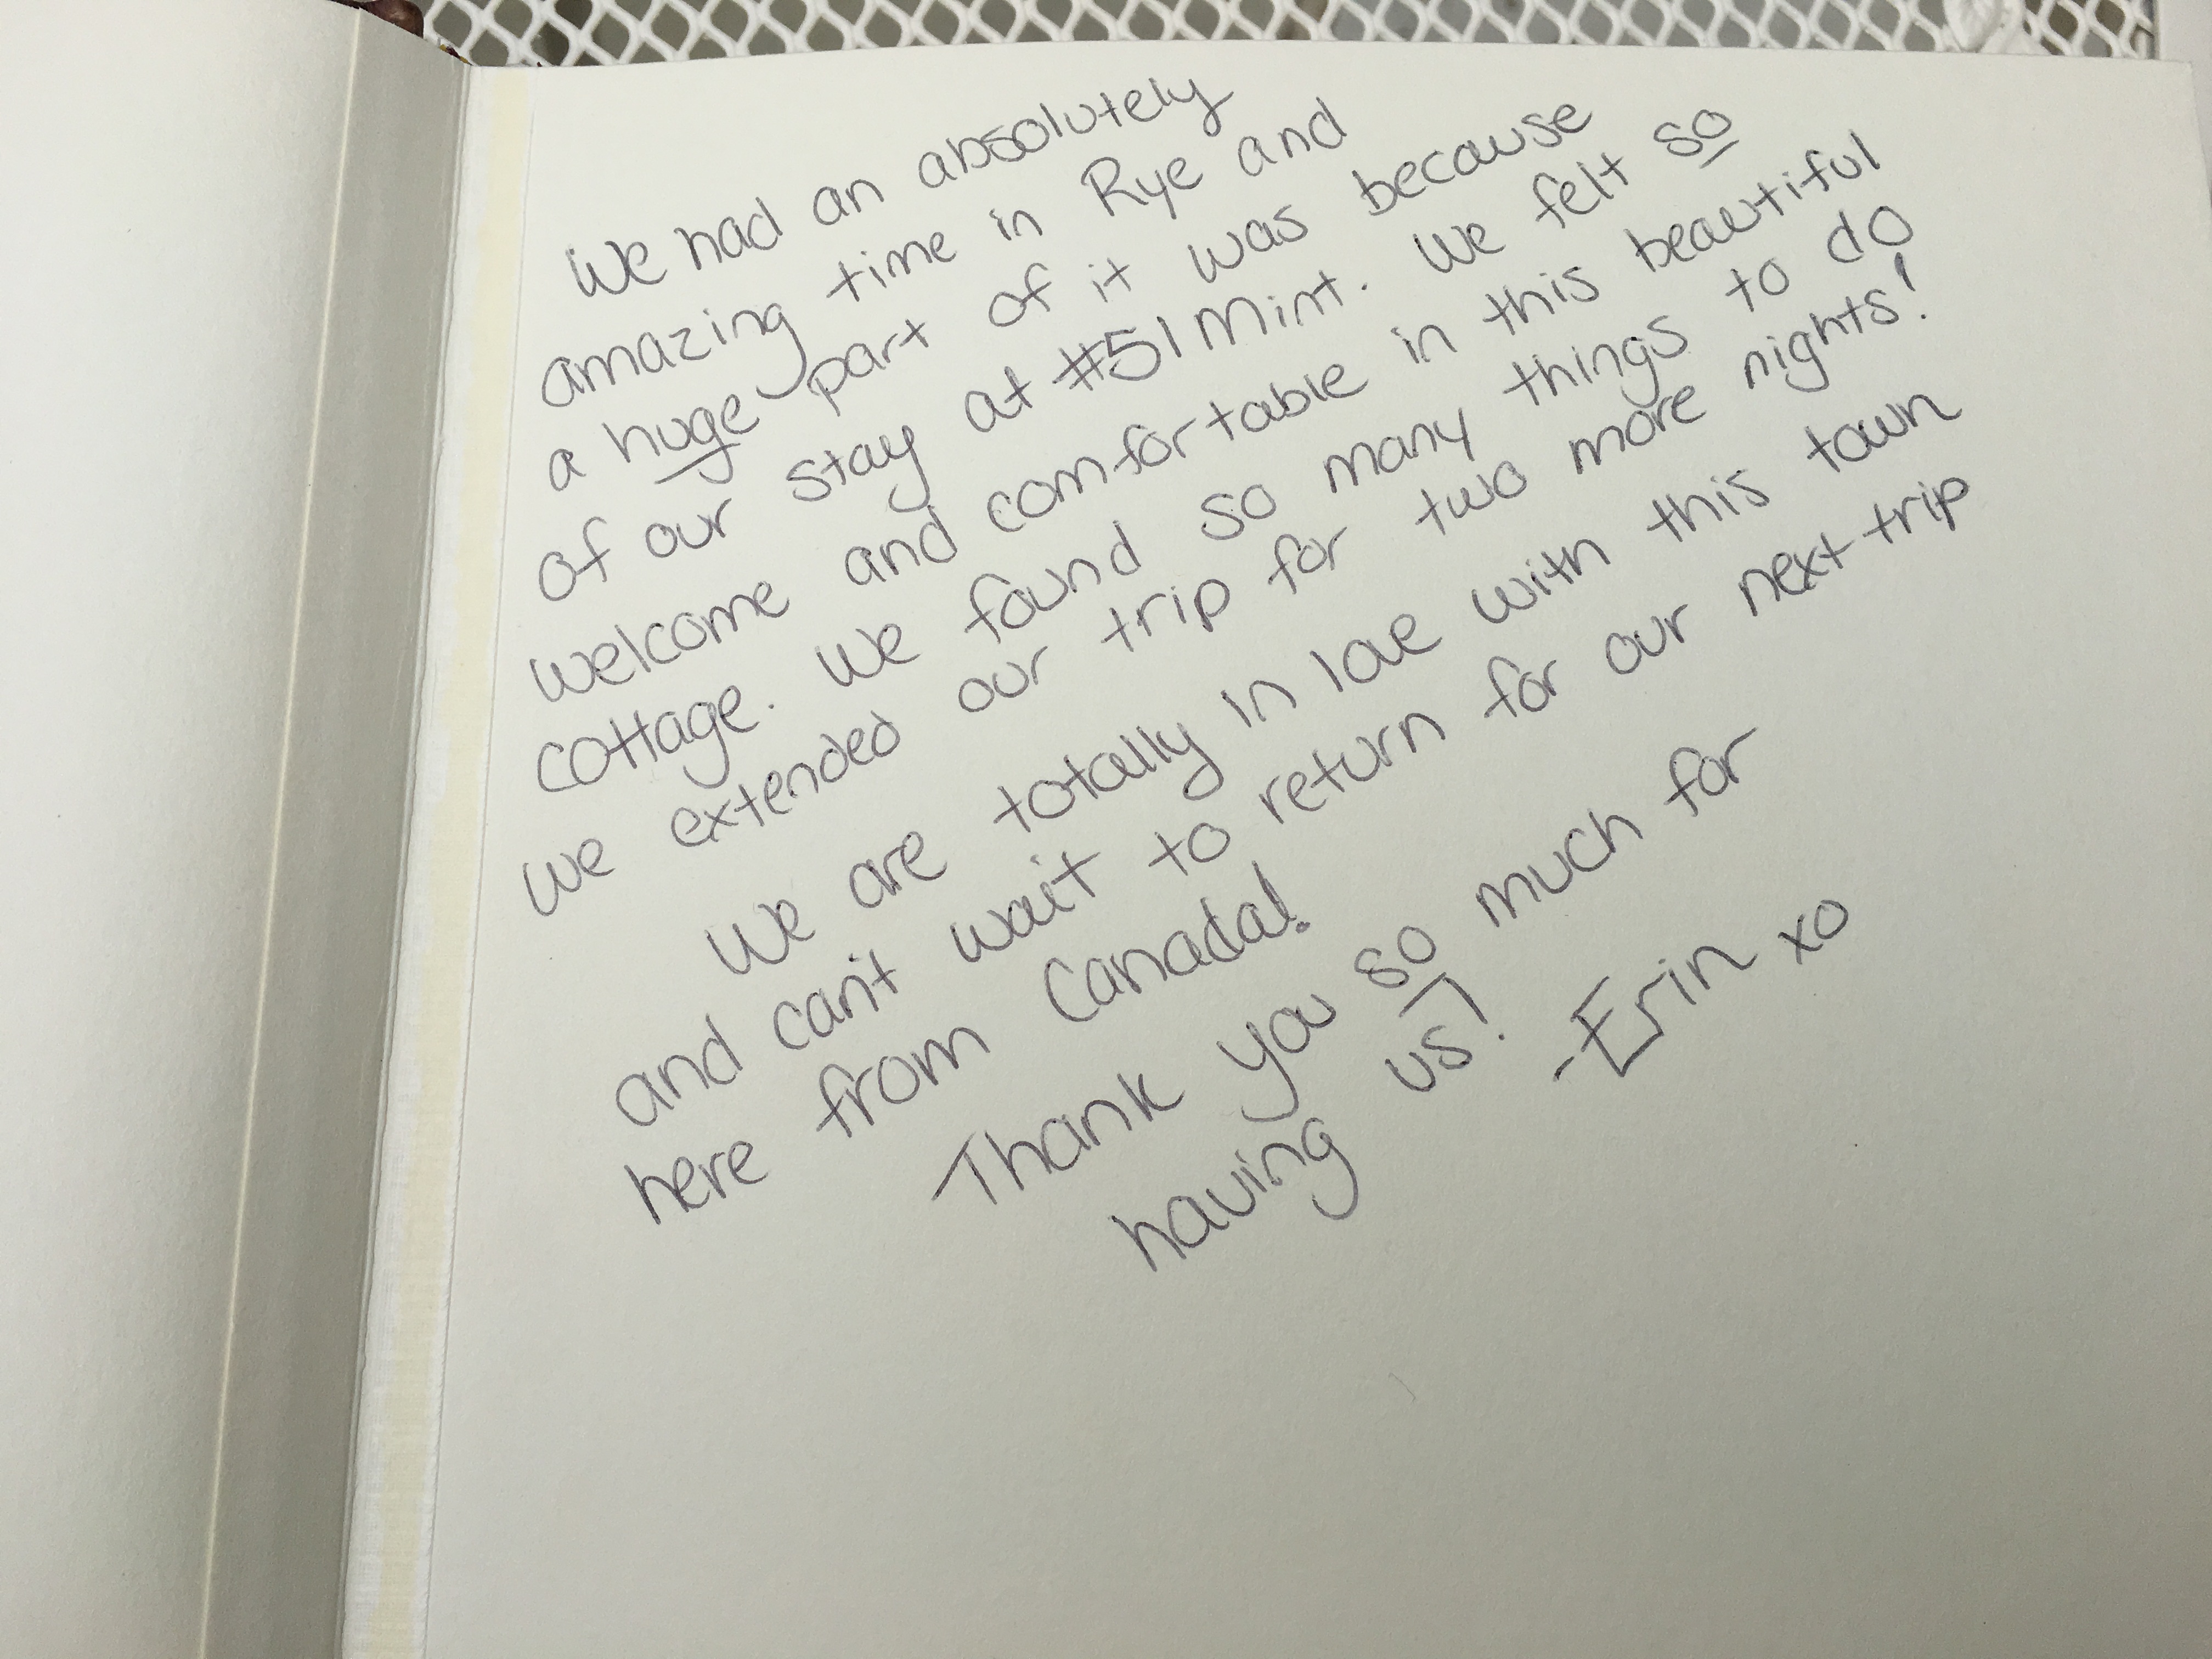 We had an absolutely
amazing time in Rye and
a huge part of it was because
of our stay at #51 Mint. We felt so
welcome and comfortable in this beautiful
cottage. We found so many things to do
we extended our trip for two more nights!
We are totally in love with this town
and can't wait to return for our next trip
here from Canada!
Thank you so much for
having us!
-Erin xo